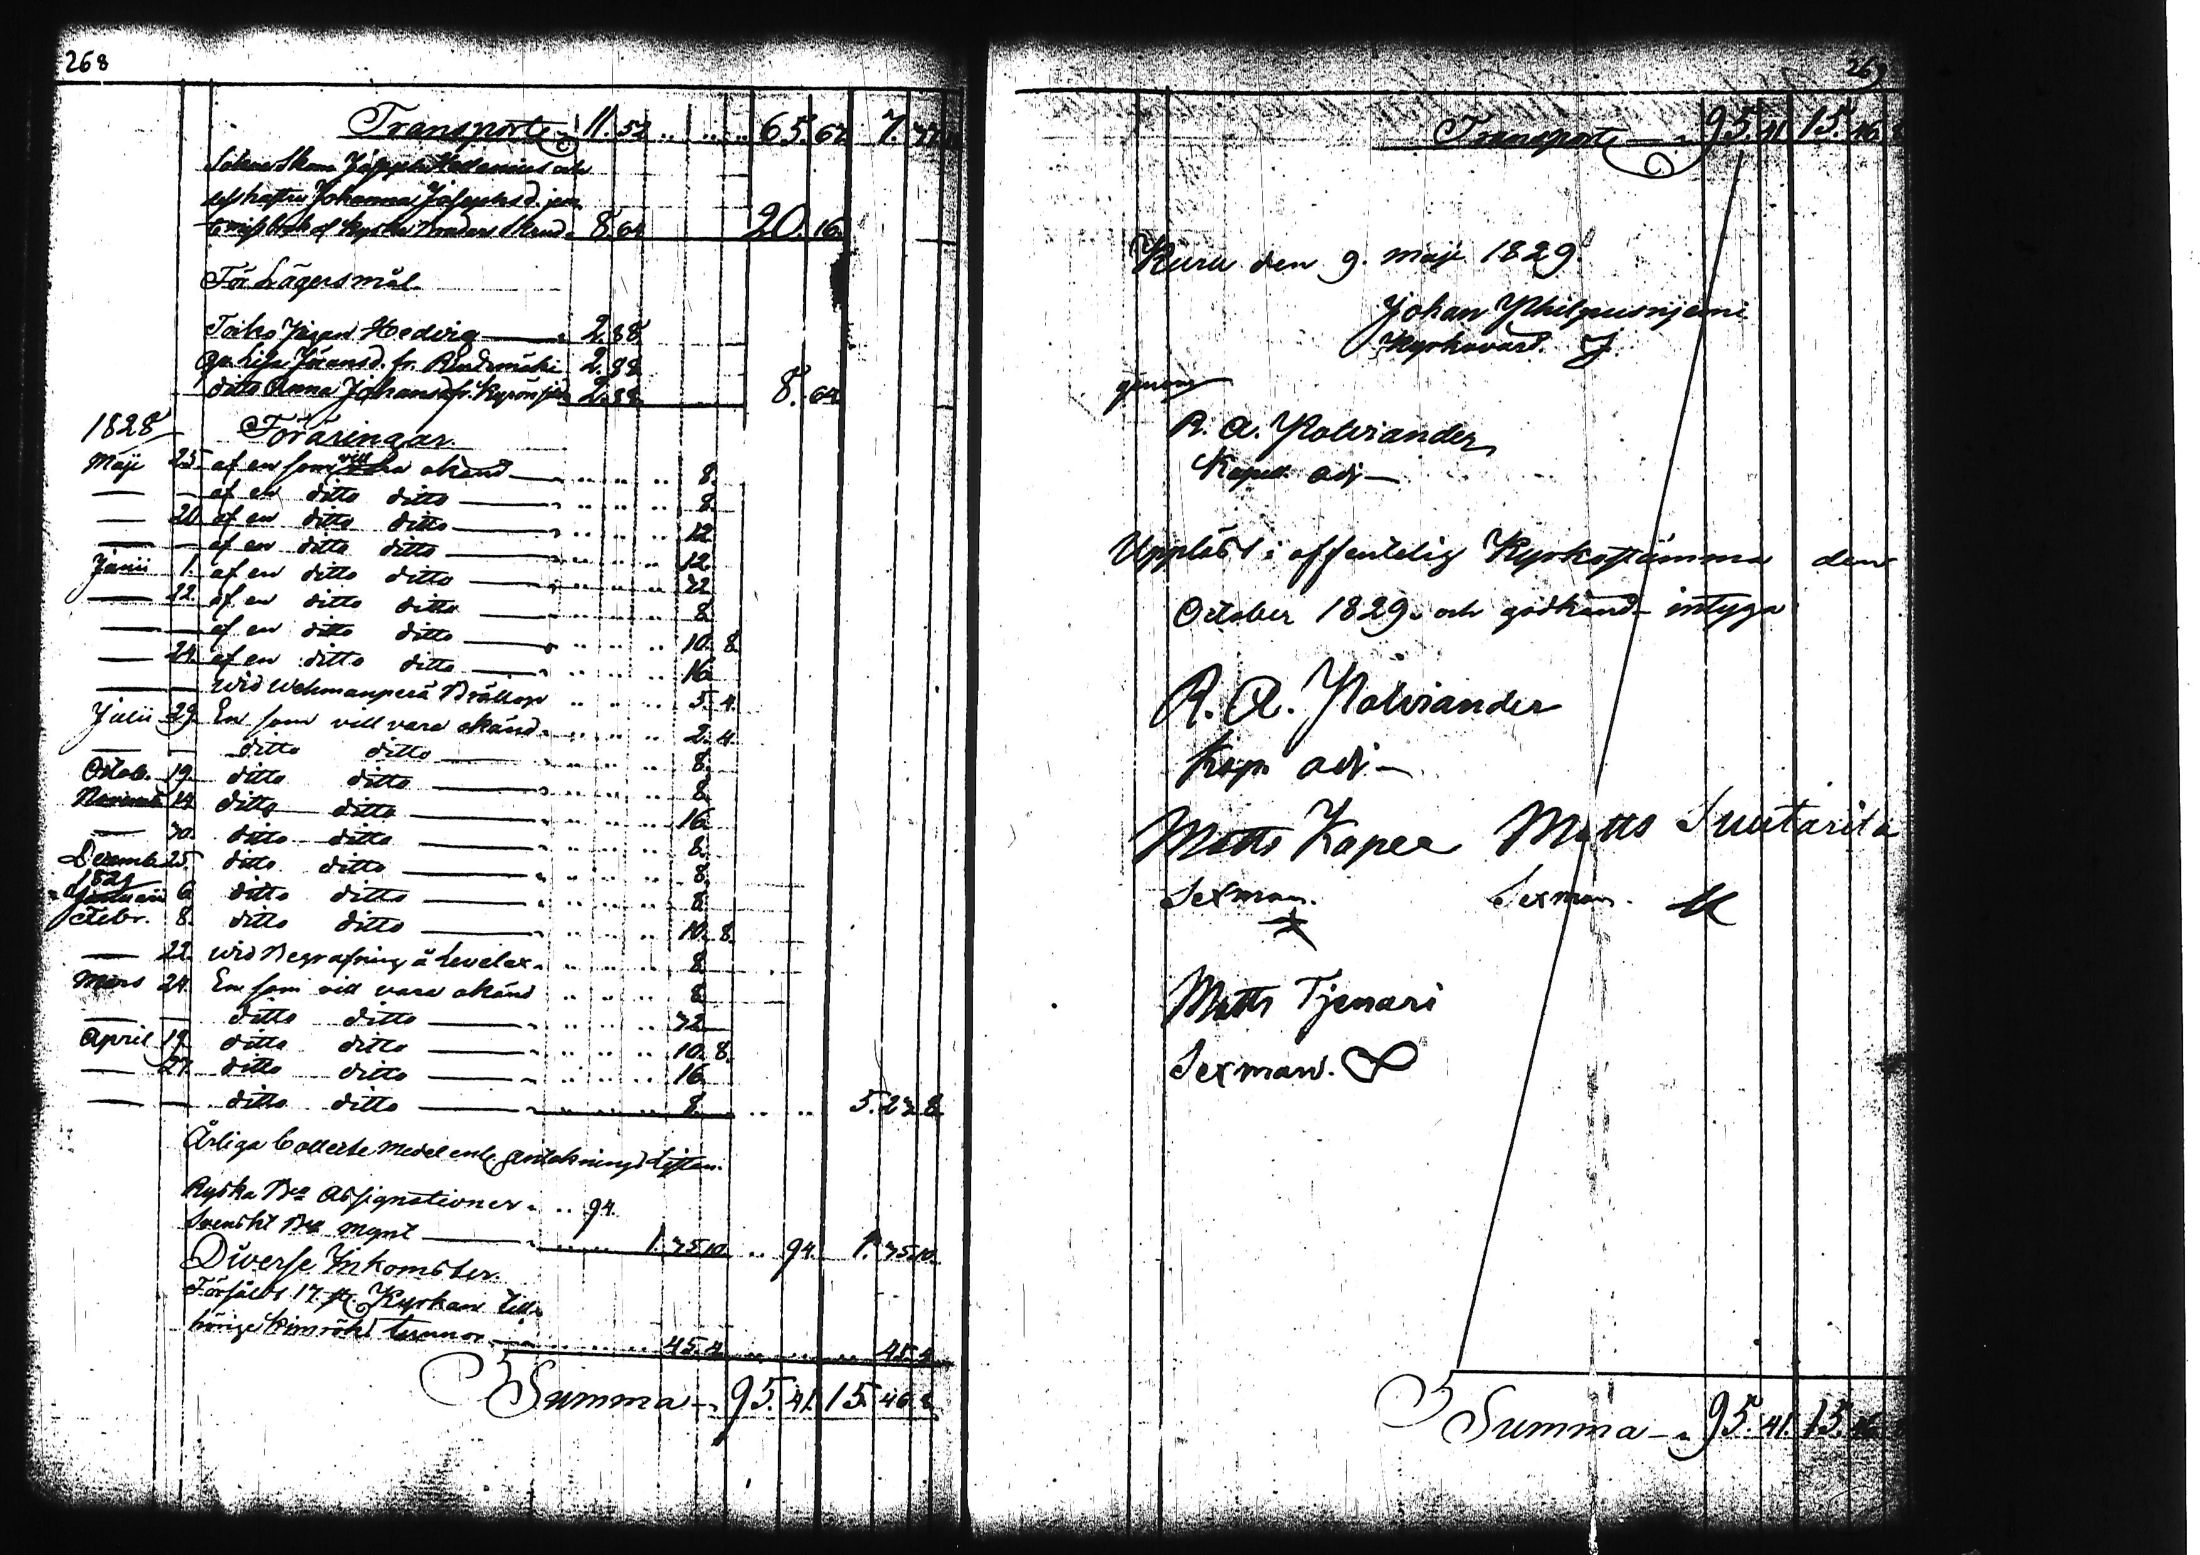 268
Transport 11. 52 .. .. .. .. 65. 62 7.
Johanna Josephsd.
8. 64 20. 16.
För Lägersmål.
Hedvig — 2. 88
Jöransd. fr. 2. 88
ditto Anna Johansd. fr. 2. 88. 8. 64
1828 Föräringar.
Maji 25. af en som vill okänd — 8.
— — af en ditto ditto — 8.
— 20 af en ditto ditto — 12
— — af en ditto ditto — 12.
Junii 1. af en ditto ditto — 32
— 22. af en ditto ditto — 8.
— — af en ditto ditto — 10. 8.
— 24. af en ditto ditto — 16.
— — wid Wehmanperä Bröllop 5. 4.
Julii 29. En som vill vara okänd. 2. 4.
— — ditto ditto — 8.
Octob. 19. ditto ditto — 8.
14. ditto ditto — 16.
— 30. ditto ditto — 8.
Decemb. 25. ditto ditto — 8.
1829
Januarii 6. ditto ditto — 8.
Febr. 8. ditto ditto — 10. 8.
— 22. wid Begrafning å Levelax. 8.
Mars 24. En som vill vara okänd 8.
— — ditto ditto — 32
April 19. ditto ditto — 10. 8.
— 27. ditto ditto — 16.
— — ditto ditto — 8. .. .. 5. 27. 8.
Årliga Collecte Medel enl. Listan.
Ryska Bco Assignationer .. 94.
Svenskt Bco Mynt — 1. 35. 10. .. 94. 1. 35. 10.
Diverse Inkomster.
Försålde 17. st. Kyrkan till-
hörige kimröks tunnor — 45. 4. 45. 4
Summa — 95. 41. 15. 46. 8.
269
Transport — 95. 41. 15. 46.
Kuru den 9. maji 1829.
Johan
Kyrkovärd.
R. A. Polviander
Kapell. adj —
Uppläst i offentelig Kyrkostämma den
October 1829. och godkänd intyga
R. A. Polviander
Kap. adj —
Matts Kapee Matts Suutarila
Sexman. Sexman.
Matts Tjenari
Sexman.
Summa — 95. 41. 15. 46.